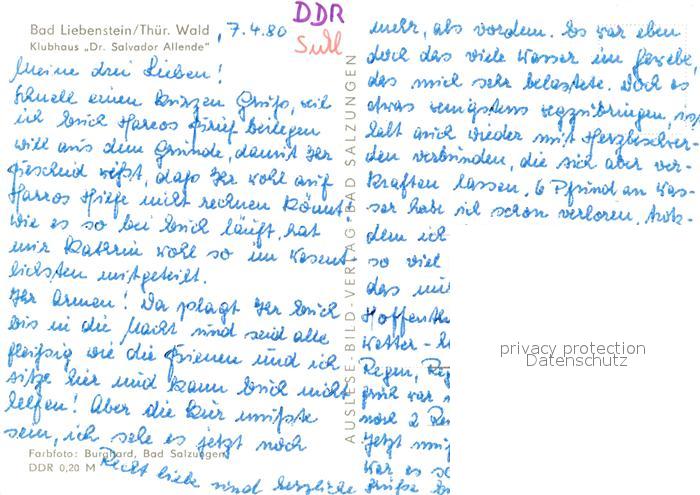 Bad Liebenstein/Thür. Wald
Klubhaus „Dr. Salvador Allende"
, 7.4.80
DDR
Suhl
Meine drei Lieben!
Schnell einen kurzen Gruß, weil
ich Euch Harros Brief beilegen
will aus dem Grunde, damit Ihr
Bescheid wißt, daß Ihr wohl auf
Harros Hilfe nicht rechnen könnt!
Wie es so bei Euch läuft, hat
mir Kathrin wohl so im wesent-
lichsten mitgeteilt.
Ihr Armen! Da plagt Ihr Euch
bis in die Nacht und seid alle
fleißig wie die Bienen und ich
sitze hier und kann Euch nicht
helfen! Aber die Kur mußte
sein, ich sehe es jetzt noch
Recht liebe und herzliche
Farbfoto: Burghard, Bad Salzungen
DDR 0,20 M
AUSLESE-BILD-VERLAG-BAD SALZUNGEN
mehr, als vordem. Es war eben
doch das viele Wasser im Gewebe,
das mich sehr belastete. Doch es
etwas wenigstens wegzubringen, ist
halt auch wieder mit Herzbeschwer-
den verbunden, die sich aber ver-
kraften lassen. 6 Pfund an Was-
ser habe ich schon verloren. Trotz-
dem ich
so viel
das
Wetter-
Regen,
war
noch 2
Jetzt
War es
Grüße
privacy protection
Datenschutz